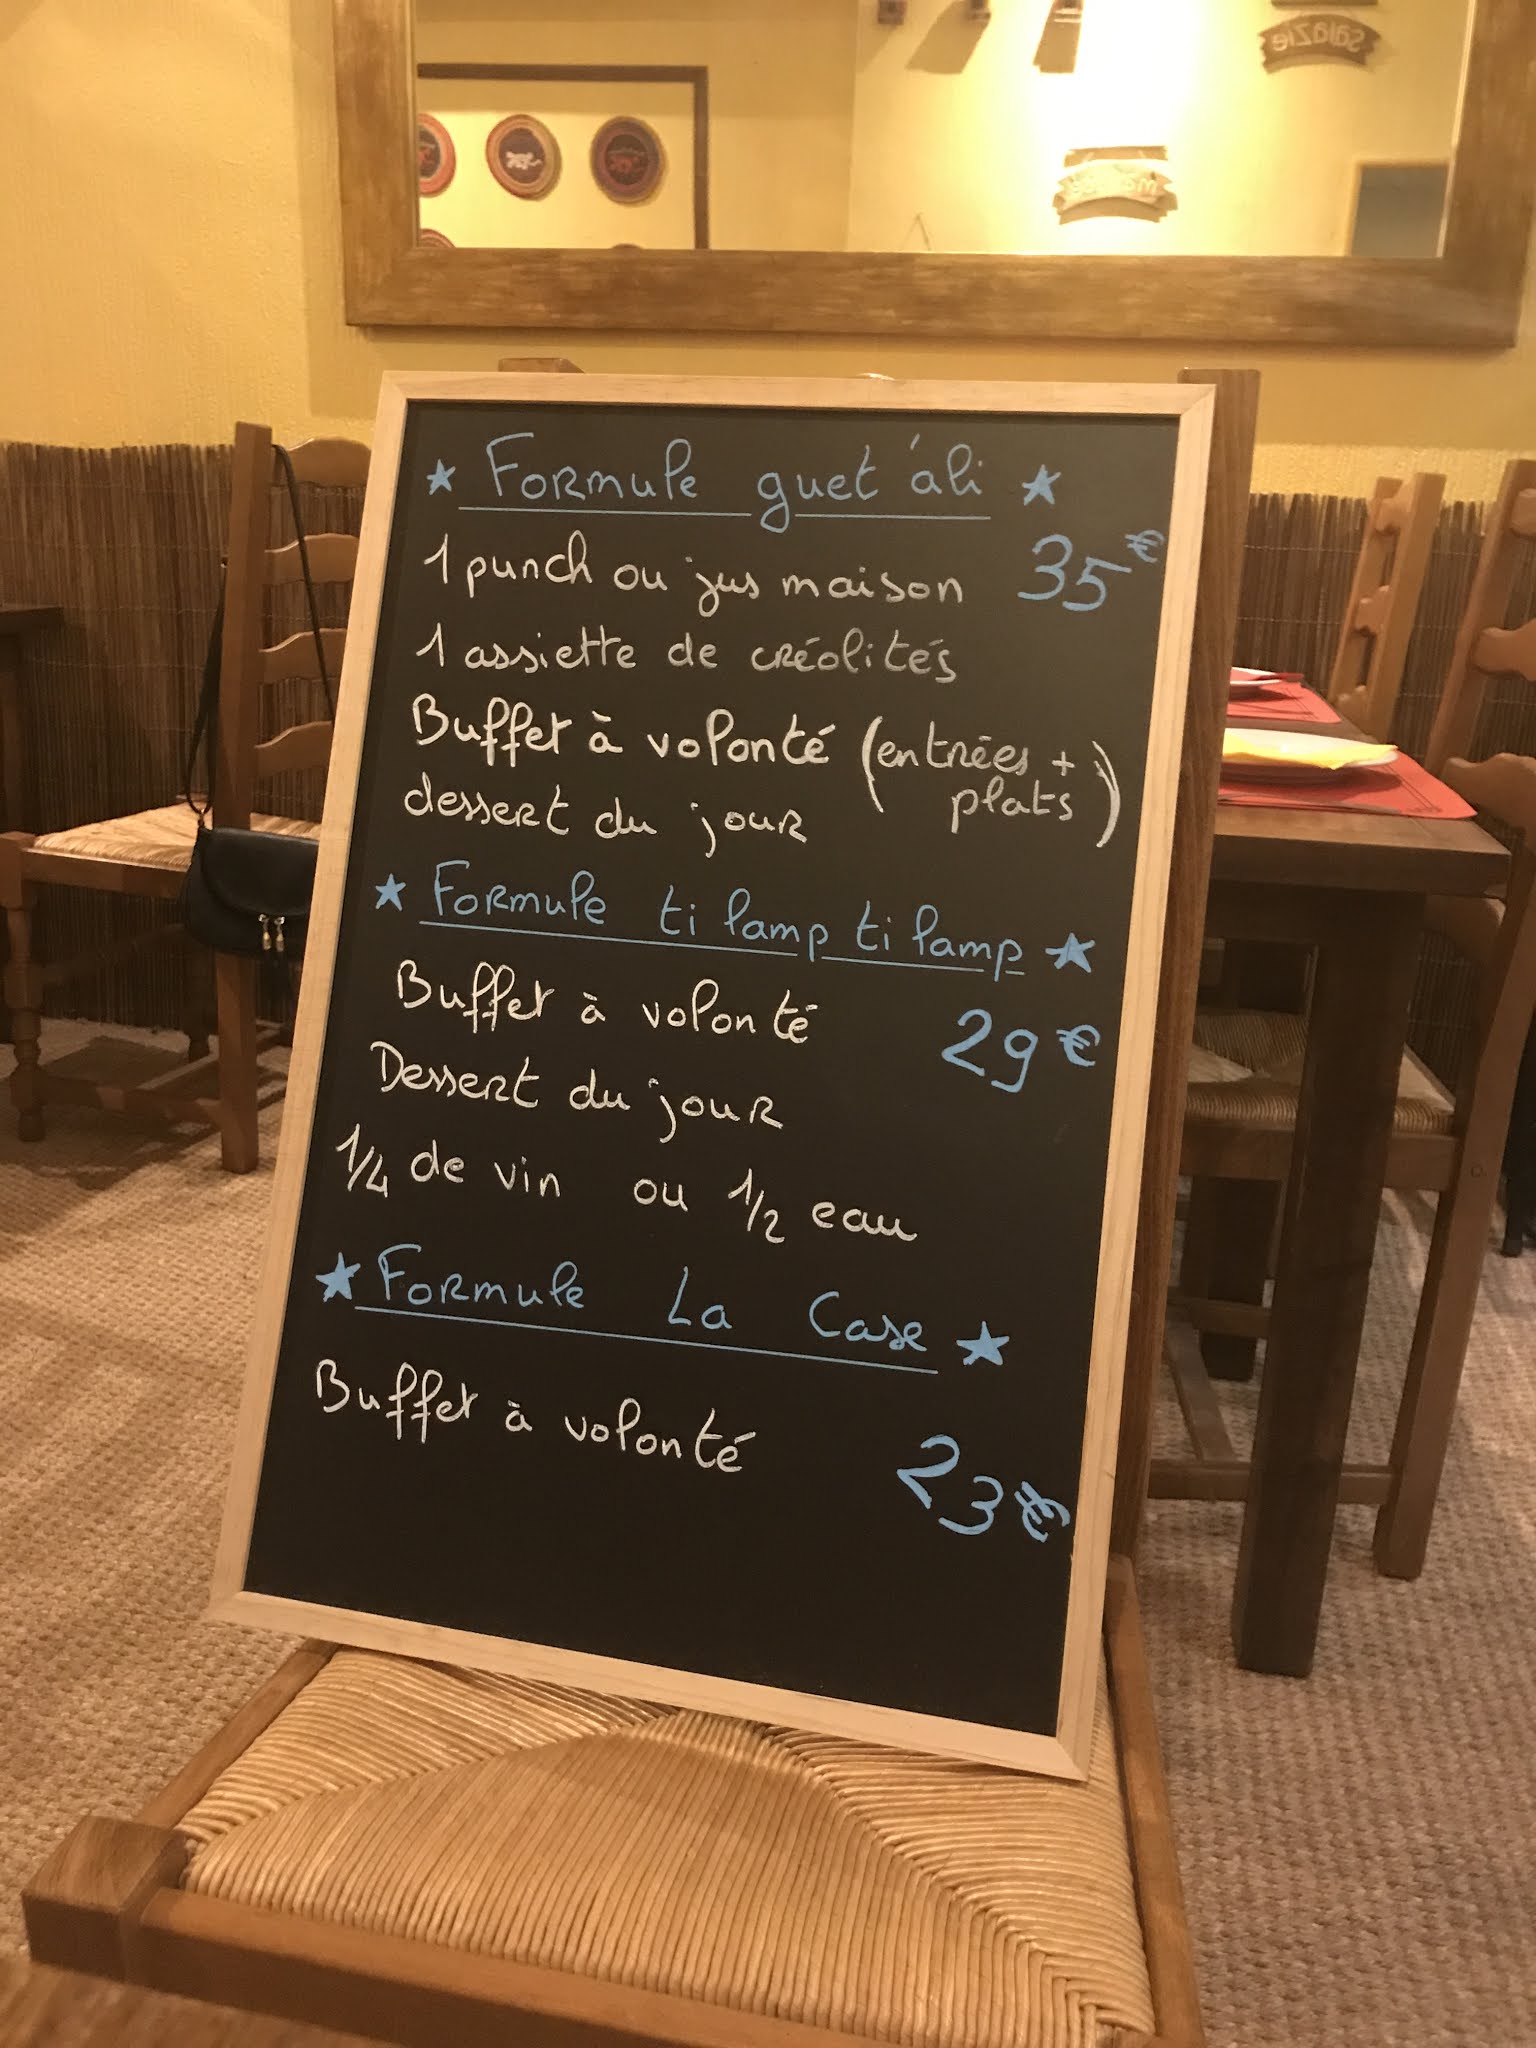 salazie
★ Formule guet'ali ★
1 punch ou jus maison 35€
1 assiette de créolités
Buffet à volonté (entrées +
plats)
dessert du jour
★ Formule ti lamp ti lamp ★
Buffet à volonté 29€
Dessert du jour
1/4 de vin ou 1/2 eau
★ Formule La Case ★
Buffet à volonté 23€